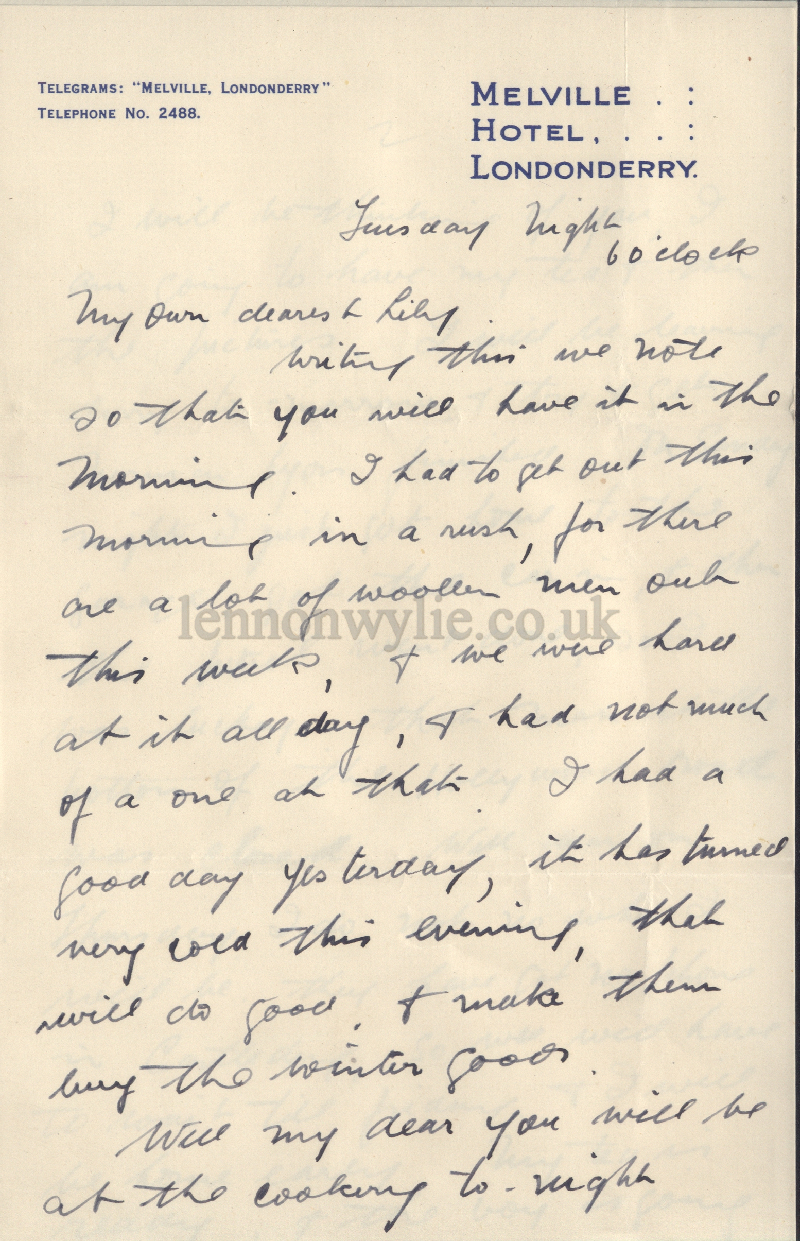 TELEGRAMS: "MELVILLE, LONDONDERRY"
TELEPHONE NO. 2488.
MELVILLE . :
HOTEL, . . . :
LONDONDERRY.
Tuesday Night
6 o'clock
My own dearest Lily.
Writing this wee note
so that you will have it in the
Morning. I had to get out this
morning in a rush, for there
are a lot of woollen men out
this week, & we were hard
at it all day, & had not much
of a one at that. I had a
good day yesterday, it has turned
very cold this evening, that
will do good, & make them
buy the winter goods.
Well my dear you will be
at the cooking to-night
lennonwylie.co.uk